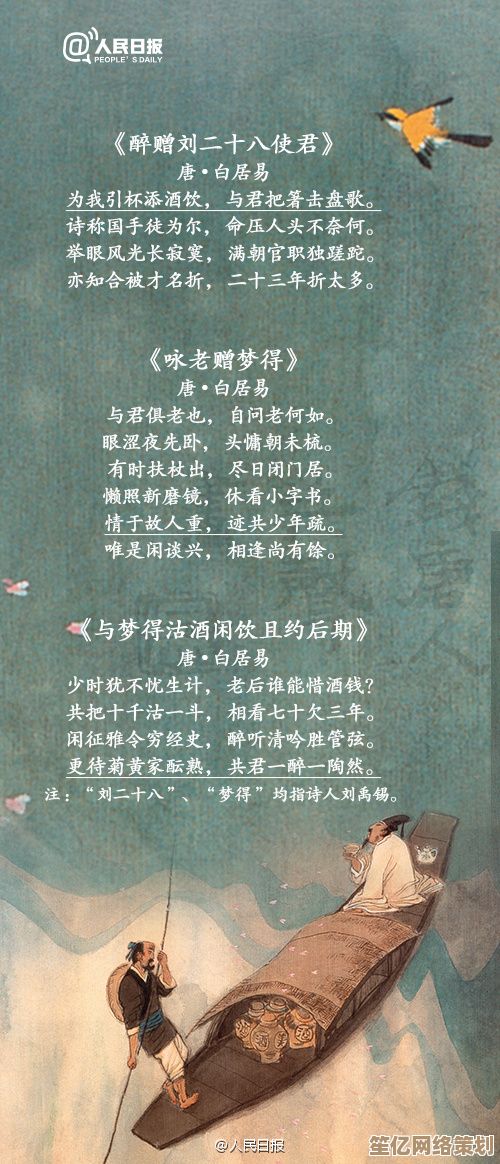 @人民日报
PEOPLE'S DAILY
《醉赠刘二十八使君》
唐·白居易
为我引杯添酒饮，与君把箸击盘歌。
诗称国手徒为尔，命压人头不奈何。
举眼风光长寂寞，满朝官职独蹉跎。
亦知合被才名折，二十三年折太多。
《咏老赠梦得》
唐·白居易
与君俱老也，自问老何如。
眼涩夜先卧，头慵朝未梳。
有时扶杖出，尽日闭门居。
懒照新磨镜，休看小字书。
情于故人重，迹共少年疏。
唯是闲谈兴，相逢尚有馀。
《与梦得沽酒闲饮且约后期》
唐·白居易
少时犹不忧生计，老后谁能惜酒钱？
共把十千沽一斗，相看七十欠三年。
闲征雅令穷经史，醉听清吟胜管弦。
更待菊黄家酝熟，共君一醉一陶然。
注：“刘二十八”、“梦得”均指诗人刘禹锡。
酒
@人民日报
笙亿网络策划